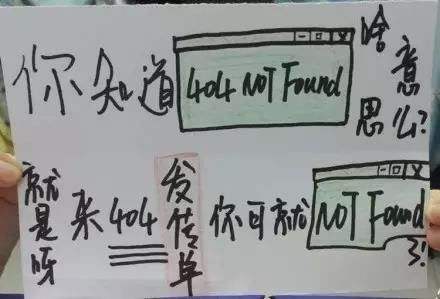 你知道404 NOT Found啥意思么?
就是呀来404发传单你可就NOT Found了!